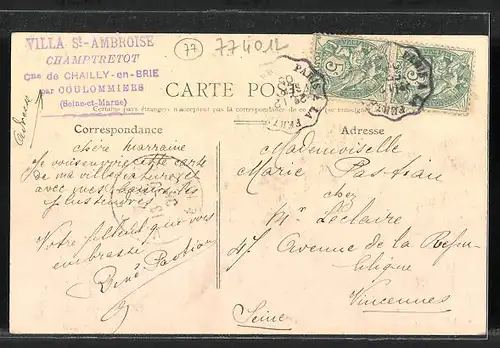 VILLA St-AMBROISE
CHAMPTRETOT
Cne de CHAILLY-en-BRIE
par COULOMMIERS
(Seine-et-Marne)
77
774012
5
5
PARIS A LA FERT
CARTE POSTALE
Certains pays étrangers n'acceptent pas la correspondance
Correspondance
Adresse
chère marraine
Je vous envoie cette carte
de ma villégiature et
avec mes
plus tendres
Votre filleul qui vous
embrasse
René Pastian
Mademoiselle
Marie Pastian
chez
Mr Leclaire
47 Avenue de la Répu-
blique
Vincennes
Seine